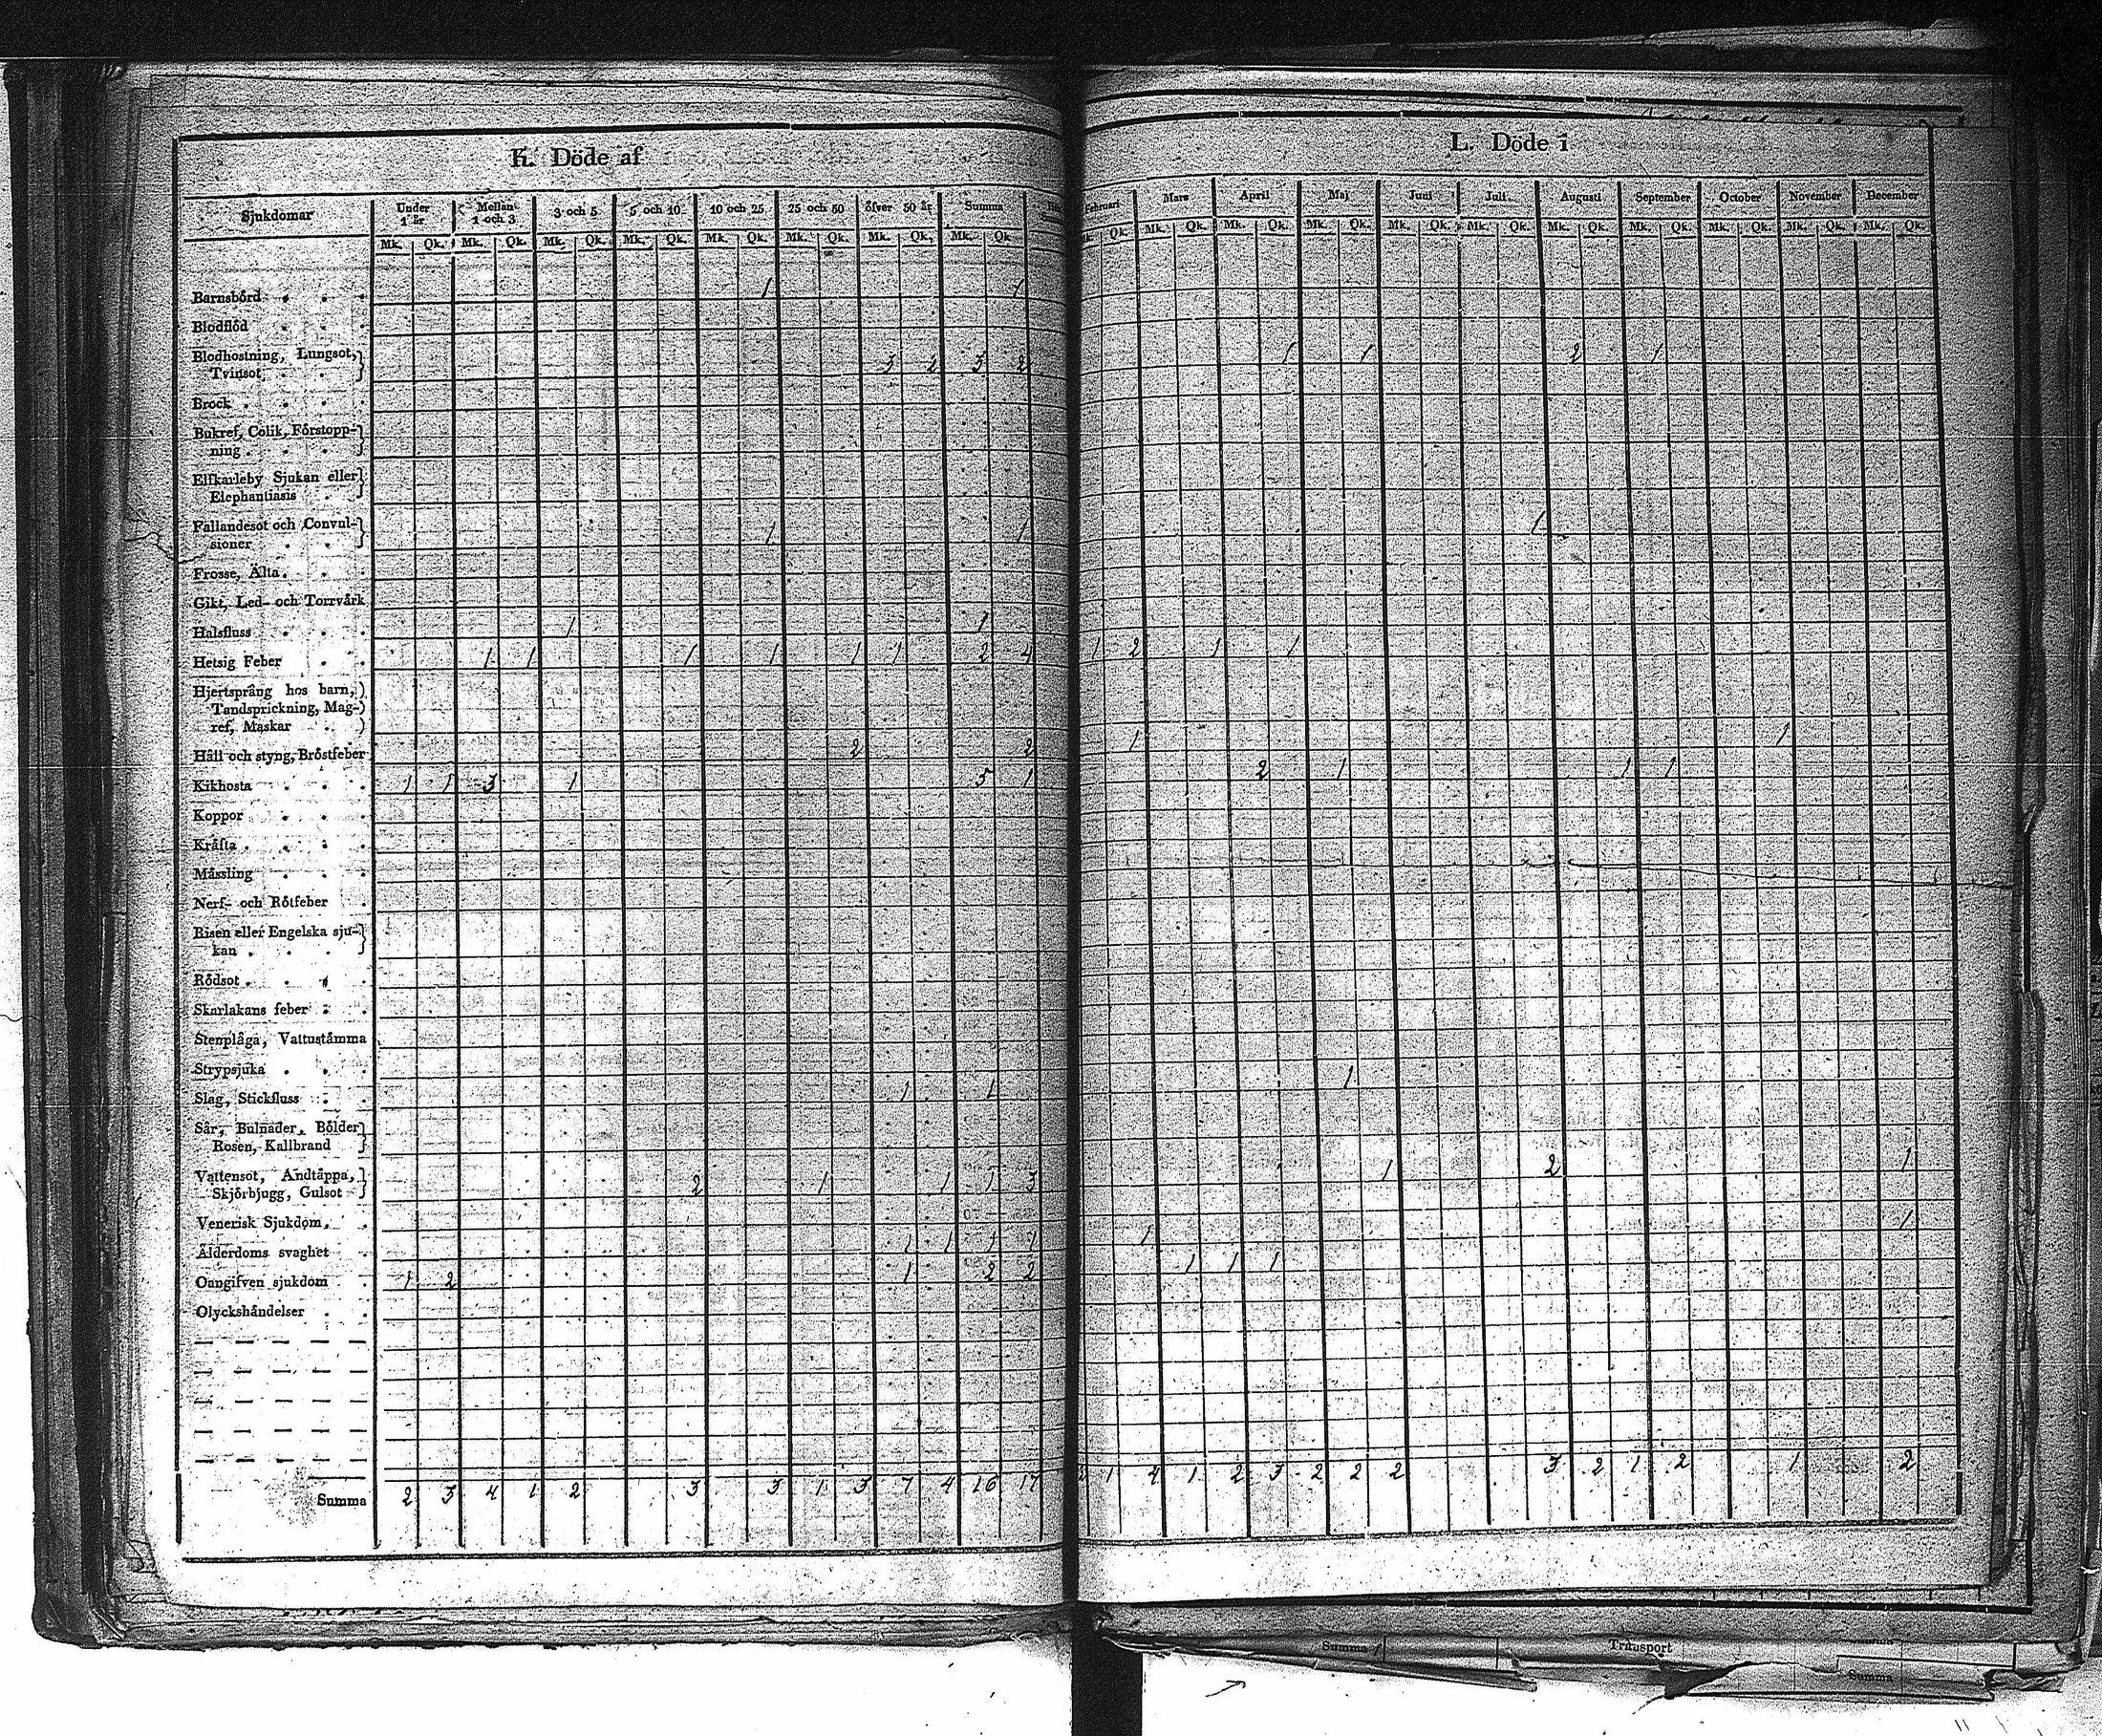 K. Döde af
L. Döde i
Sjukdomar Under 1 år Mellan 1 och 3 3 och 5 5 och 10 10 och 25 25 och 50 öfver 50 år Summa
Mk. Qk. Mk. Qk. Mk. Qk. Mk. Qk. Mk. Qk. Mk. Qk. Mk. Qk. Mk. Qk.
Februari Mars April Maj Juni Juli Augusti September October November December
Qk. Mk. Qk. Mk. Qk. Mk. Qk. Mk. Qk. Mk. Qk. Mk. Qk. Mk. Qk. Mk. Qk. Mk. Qk. Mk. Qk.
Barnsbörd 1 1
Blodflöd
Blodhostning, Lungsot,
Tvinsot 3 2 3 2 1 1 2 1
Brock
Bukref, Colik, Förstopp-
ning
Elfkarleby Sjukan eller
Elephantiasis
Fallandesot och Convul-
sioner 1 1 1
Frosse, Älta
Gikt, Led- och Torrvärk
Halsfluss 1 1
Hetsig Feber 1 1 1 1 1 1 2 4 1 2 1 1
Hjertsprång hos barn,
Tandsprickning, Mag-
ref, Maskar
Håll och styng, Bröstfeber 2 2 1 1
Kikhosta 1 1 3 1 5 1 2 1 1 1
Koppor
Kräfta
Mässling
Nerf- och Rötfeber
Risen eller Engelska sju-
kan
Rödsot
Skarlakans feber
Stenplåga, Vattustämma
Strypsjuka
Slag, Stickfluss 1 1 1
Sår, Bulnader, Bölder
Rosen, Kallbrand
Vattensot, Andtäppa,
Skjörbjugg, Gulsot 2 1 1 1 3 1 2 1
Venerisk Sjukdom
Ålderdoms svaghet 1 1 1 1 1 1
Oangifven sjukdom 1 2 1 2 2 1 1 1
Olyckshändelser
Summa 2 3 4 1 2 3 3 1 3 7 4 16 17 2 1 4 1 2 3 2 2 2 3 2 1 2 1 2
Summa
Transport
Summa